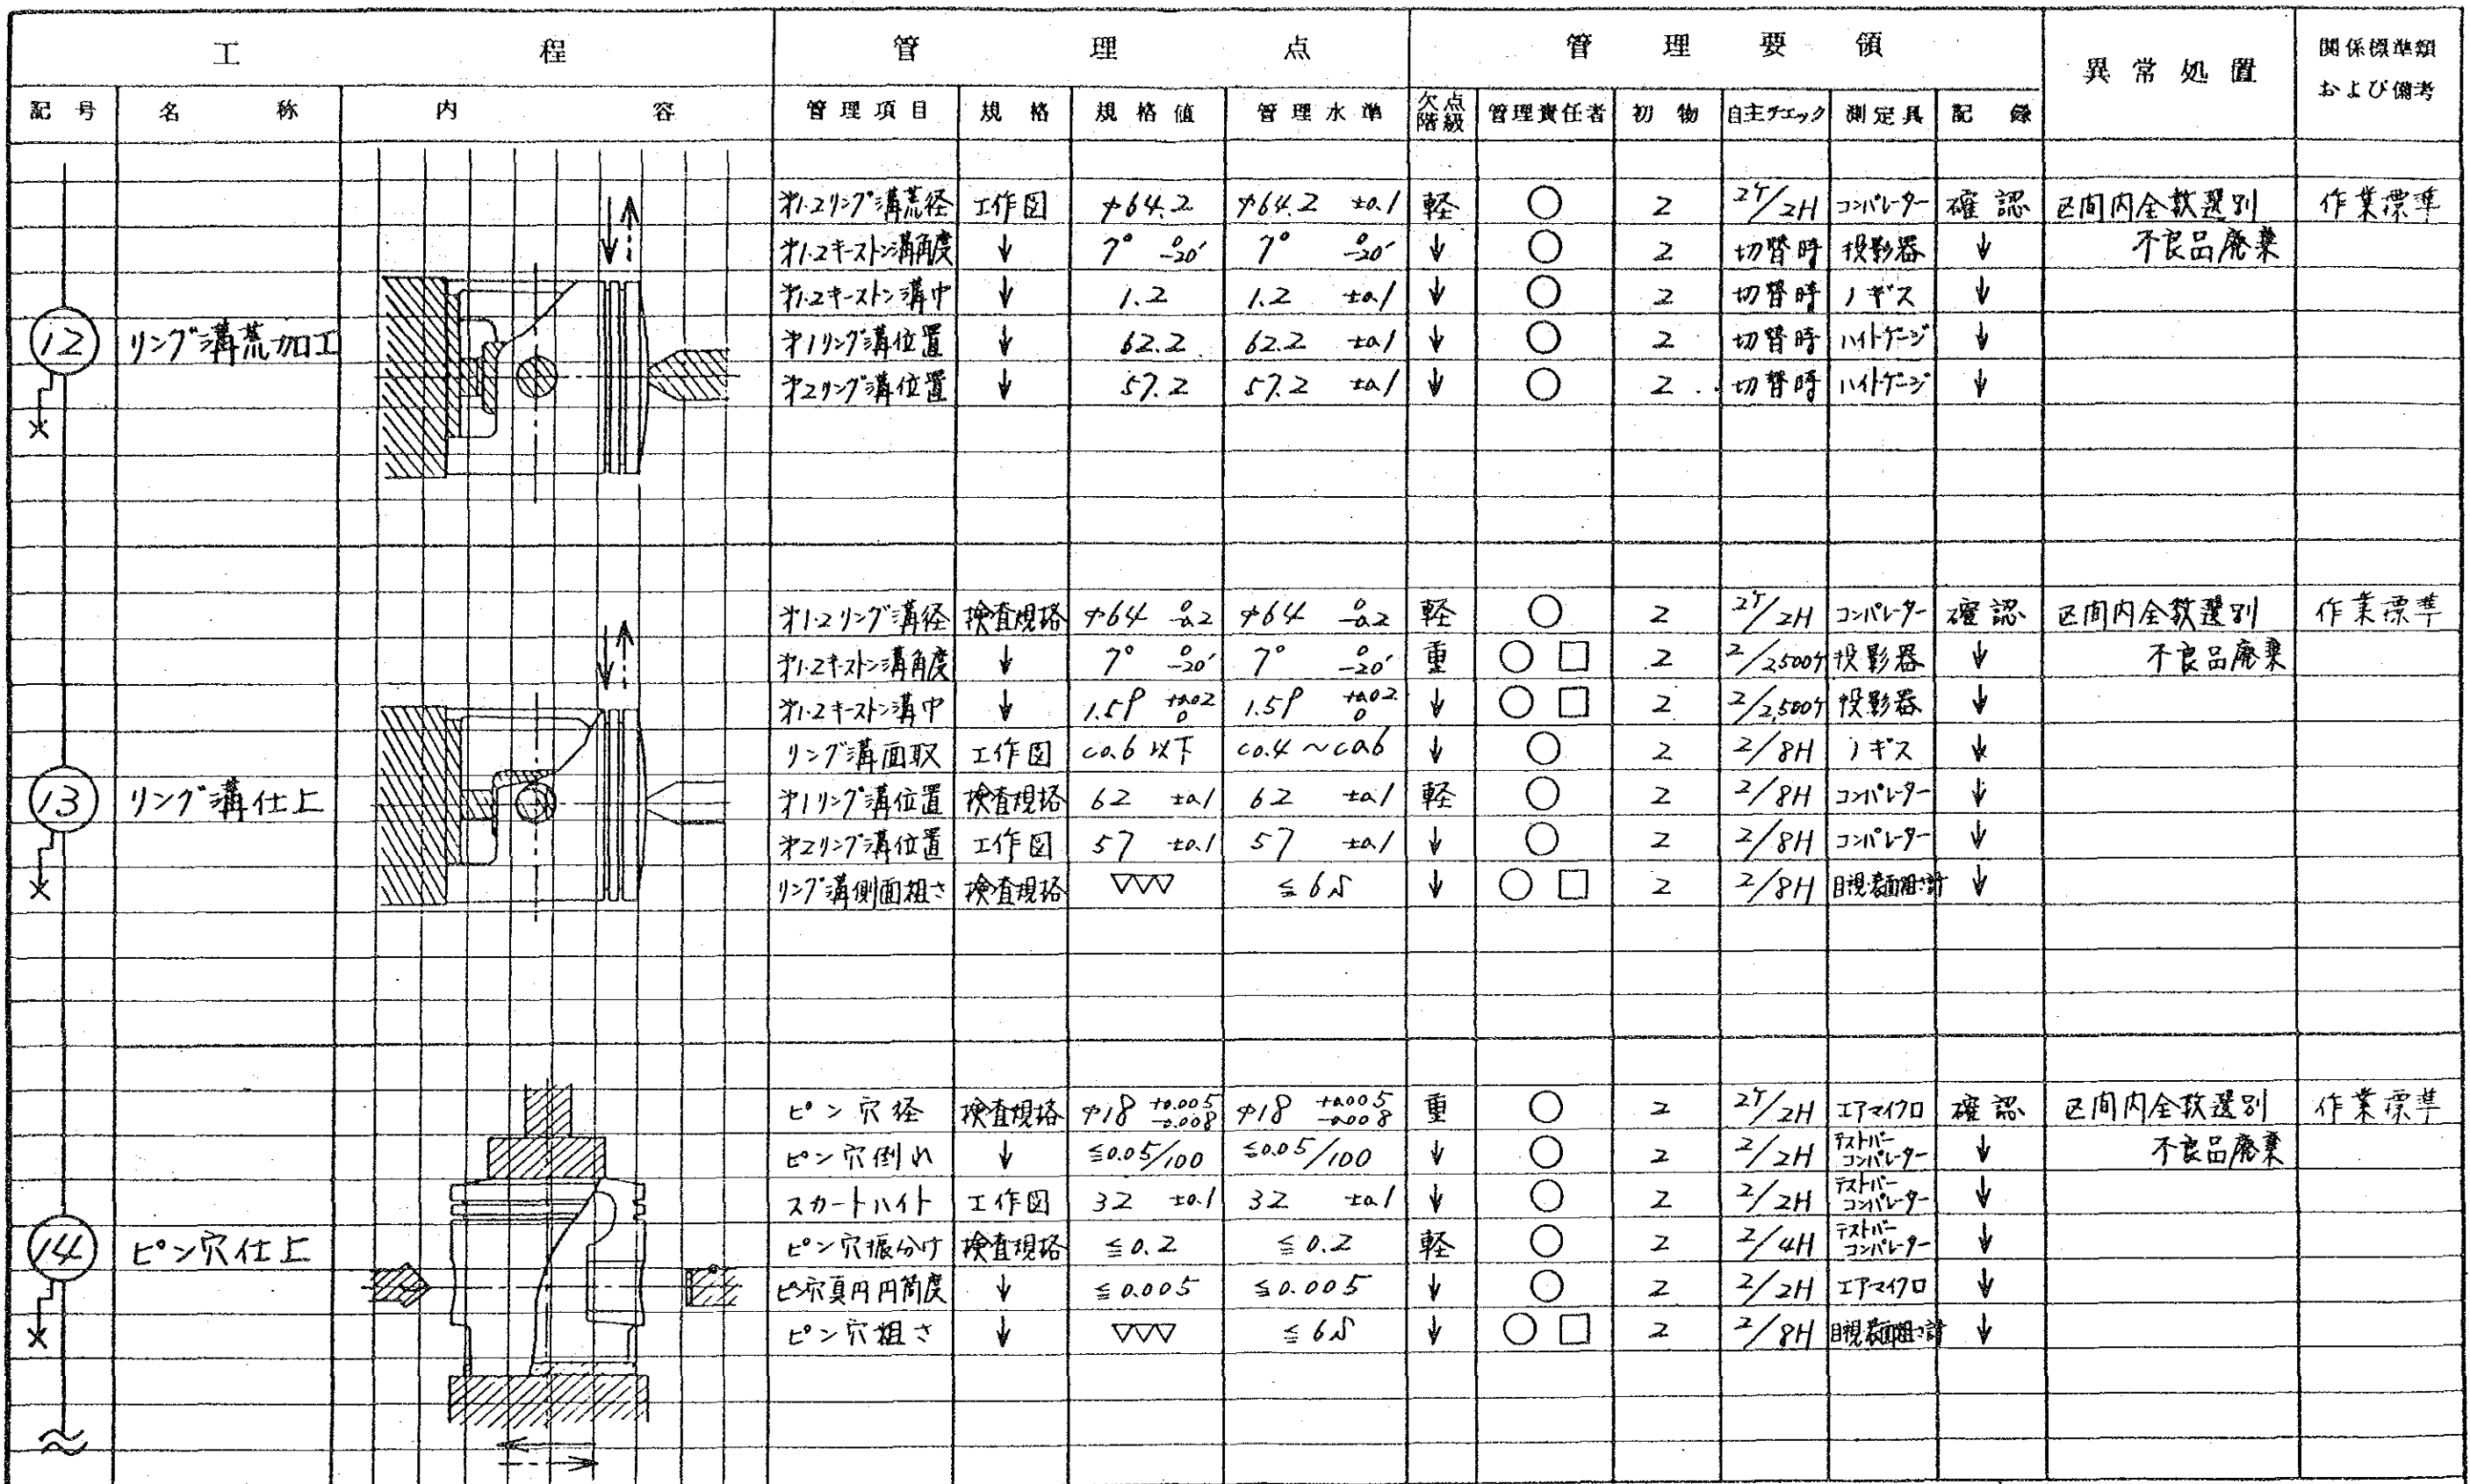 工程 管理点 管理要領 異常処置 関係標準類および備考
記号 名称 内容 管理項目 規格 規格値 管理水準 欠点階級 管理責任者 初物 自主チエック 測定具 記録
才1.2リング溝荒径 工作図 φ64.2 φ64.2 ±0.1 軽 ○ 2 2ケ/2H コンパレーター 確認 区間内全数選別 作業標準
才1.2キーストン溝角度 ↓ 7° 0 -20′ 7° 0 -20′ ↓ ○ 2 切替時 投影器 ↓ 不良品廃棄
才1.2キーストン溝巾 ↓ 1.2 1.2 ±0.1 ↓ ○ 2 切替時 ノギス ↓
⑫ リング溝荒加工 才1リング溝位置 ↓ 62.2 62.2 ±0.1 ↓ ○ 2 切替時 ハイトゲージ ↓
才2リング溝位置 ↓ 57.2 57.2 ±0.1 ↓ ○ 2 切替時 ハイトゲージ ↓
才1.2リング溝径 検査規格 φ64 0 -0.2 φ64 0 -0.2 軽 ○ 2 2ケ/2H コンパレーター 確認 区間内全数選別 作業標準
才1.2キーストン溝角度 ↓ 7° 0 -20′ 7° 0 -20′ 重 ○ □ 2 2/2,500ケ 投影器 ↓ 不良品廃棄
才1.2キーストン溝巾 ↓ 1.59 +0.02 0 1.59 +0.02 0 ↓ ○ □ 2 2/2,500ケ 投影器 ↓
リング溝面取 工作図 C0.6以下 C0.4～C0.6 ↓ ○ 2 2/8H ノギス ↓
⑬ リング溝仕上 才1リング溝位置 検査規格 62 ±0.1 62 ±0.1 軽 ○ 2 2/8H コンパレーター ↓
才2リング溝位置 工作図 57 ±0.1 57 ±0.1 ↓ ○ 2 2/8H コンパレーター ↓
リング溝側面粗さ 検査規格 ▽▽▽ ≦6S ↓ ○ □ 2 2/8H 目視表面粗さ計 ↓
ピン穴径 検査規格 φ18 +0.005 -0.008 φ18 +0.005 -0.008 重 ○ 2 2ケ/2H エアマイクロ 確認 区間内全数選別 作業標準
ピン穴倒れ ↓ ≦0.05/100 ≦0.05/100 ↓ ○ 2 2/2H テストバーコンパレーター ↓ 不良品廃棄
スカートハイト 工作図 32 ±0.1 32 ±0.1 ↓ ○ 2 2/2H テストバーコンパレーター ↓
⑭ ピン穴仕上 ピン穴振分け 検査規格 ≦0.2 ≦0.2 軽 ○ 2 2/4H テストバーコンパレーター ↓
ピン穴真円円筒度 ↓ ≦0.005 ≦0.005 ↓ ○ 2 2/2H エアマイクロ ↓
ピン穴粗さ ↓ ▽▽▽ ≦6S ↓ ○ □ 2 2/8H 目視表面粗さ計 ↓